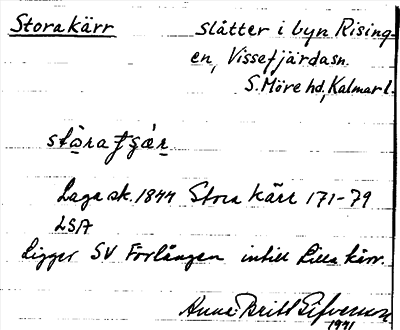 Stora kärr slåtter i byn Rising-
en, Vissefjärda sn.
S. Möre hd, Kalmar l.
Laga sk. 1844 Stora Kärr 171-79
LSA
Ligger SV Förlången intill Lilla kärr.
Anna-Britt
1971